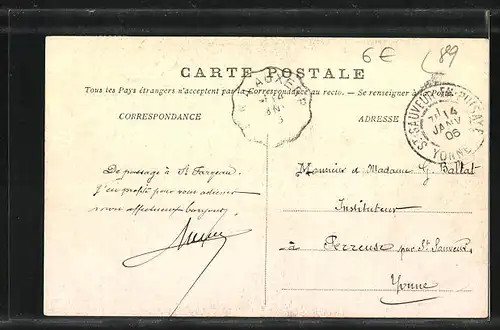 6€
(89
CARTE POSTALE
Tous les Pays étrangers n'acceptent pas la Correspondance au recto. — Se renseigner à la Poste
CORRESPONDANCE
ADRESSE
ST-SAUVEUR-EN-PUISAYE
14
JANV
06
YONNE
De passage à St Fargeau
J'en profite pour vous adresser
mon affectueux bonjour.
Monsieur et Madame G. Ballat
Instituteur
à Perreuse par St Sauveur,
Yonne